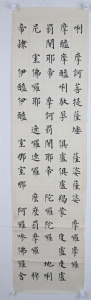 唎 摩訶菩提薩埵 薩婆薩婆 摩囉摩囉
摩醯摩醯唎馱孕 俱盧俱盧羯蒙 度盧度盧
罰闍耶帝 摩訶罰闍耶帝 陀羅陀羅 地唎
尼 室佛囉耶 遮囉遮囉 麼麼罰摩囉 穆
帝隸 伊醯伊醯 室那室那 阿囉嘇佛囉舍